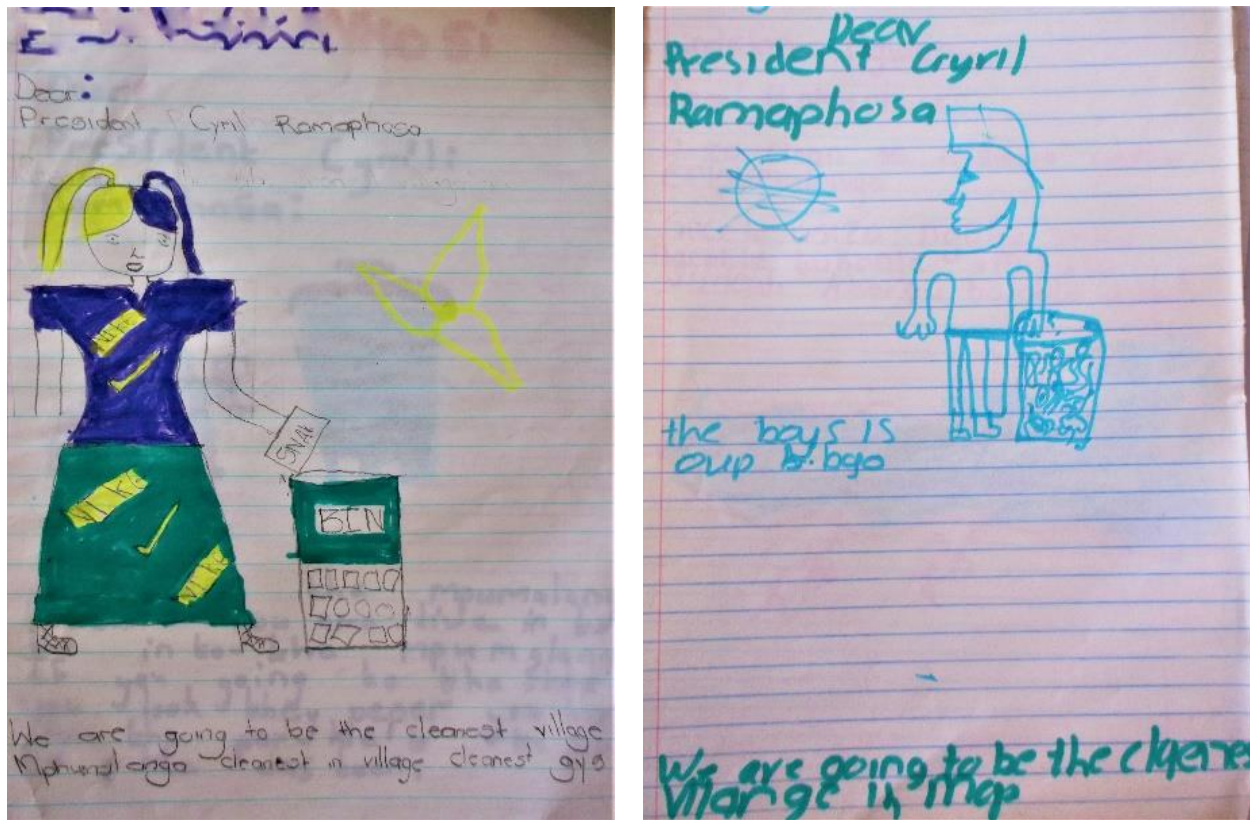 Dear:
President Cyril Ramaphosa
NIKE
SNAK
NIKE
BIN
NIKE
We are going to be the cleanest village
Mphumalanga cleanest in village cleanest gys
Dear
President Cryril
Ramaphosa
the boys is
We are going to be the
village in map